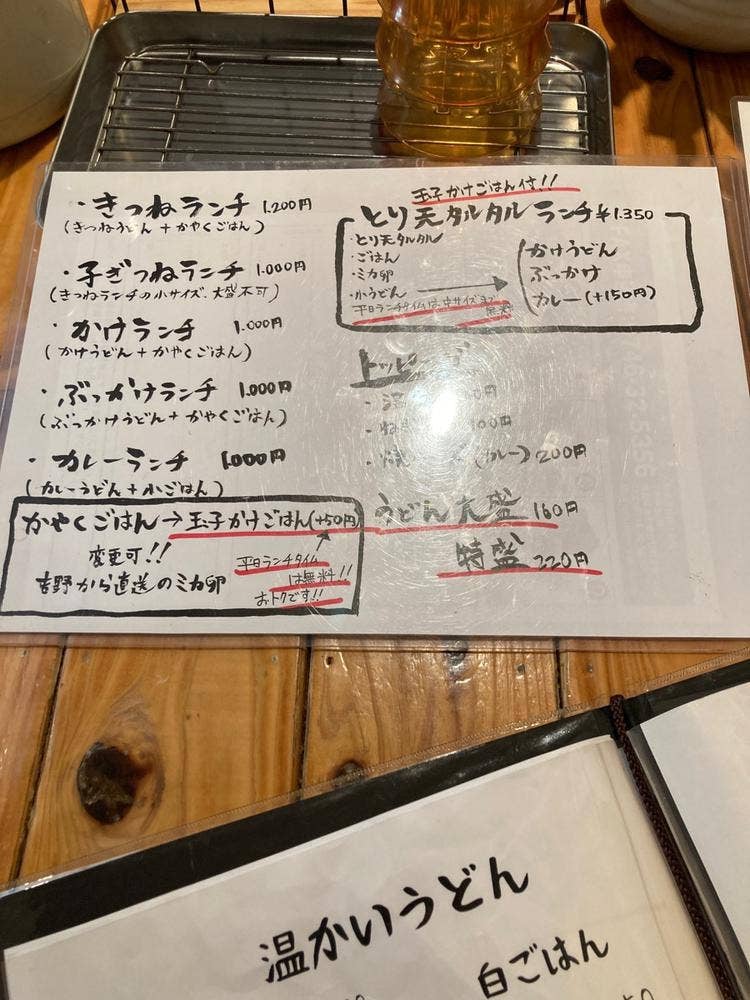 ・きつねランチ 1.200円
(きつねうどん + かやくごはん)
・子ぎつねランチ 1.000円
(きつねランチの小サイズ、大盛不可)
・かけランチ 1.000円
(かけうどん + かやくごはん)
・ぶっかけランチ 1.000円
(ぶっかけうどん + かやくごはん)
・カレーランチ 1.000円
(カレーうどん + 小ごはん)
かやくごはん→玉子かけごはん(+50円)
変更可!!
平日ランチタイム
は無料!!
吉野から直送のミカ卵
おトクです!!
玉子かけごはん付!!
とり天タルタルランチ ¥1.350
・とり天タルタル
・ごはん
・ミカ卵
・小うどん
かけうどん
ぶっかけ
カレー(+150円)
平日ランチタイムは中サイズまで
無料
トッピング
(カレー) 200円
うどん大盛 160円
特盛 220円
温かいうどん
白ごはん